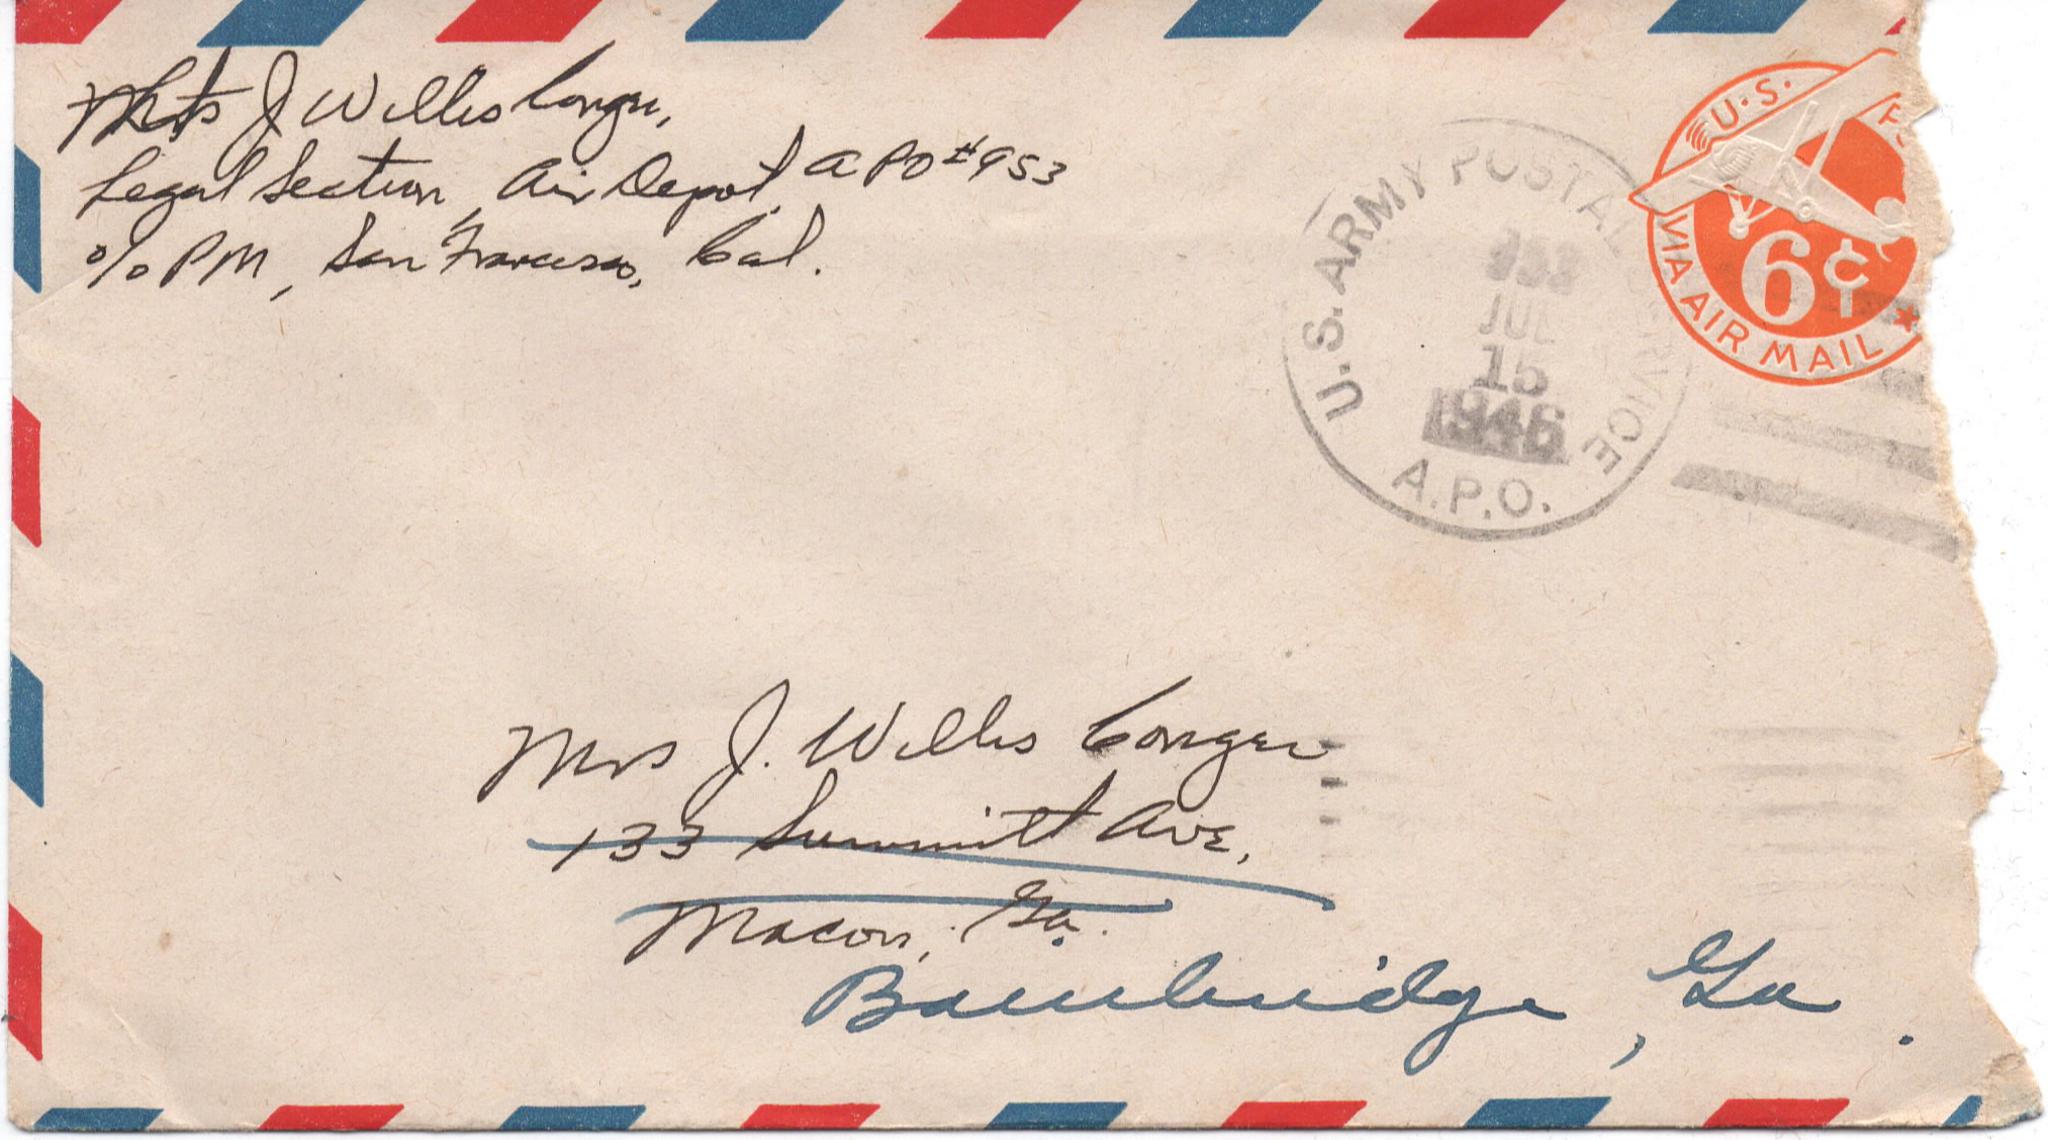 J Willis Conger,
Legal Section, Air Depot, APO #953
c/o PM, San Francisco, Cal.
U.S. ARMY POSTAL SERVICE
953
JUL
15
1946
A.P.O.
U.S.
6¢
VIA AIR MAIL
Mrs J. Willis Conger
133 Summitt Ave,
Macon, Ga.
Bainbridge, Ga.